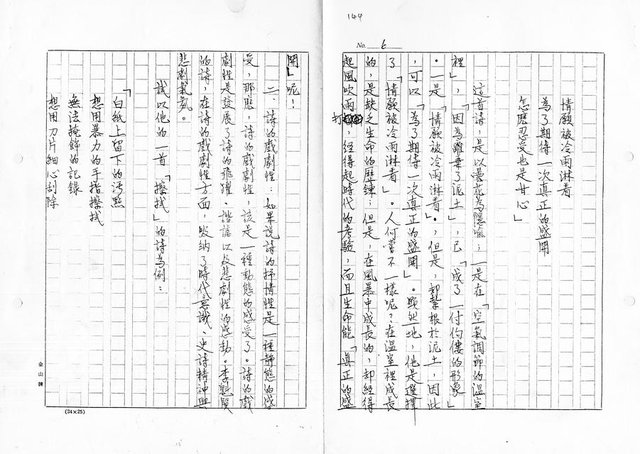 149
No. 6
情願被冷雨淋著
為了期待一次真正的盛開
怎麼忍受也是甘心」
這首詩,是以優為隱喻;一是在「空氣調節的溫室
裡」,「因為離棄了泥土」,已「成了一付佝僂的形象」
。一是「情願被冷雨淋著」。但是,卻紮根於泥土,因此
,可以「為了期待一次真正的盛開」。顯然地,他是選擇
了「情願被冷雨淋著」。人何嘗不一樣呢?在溫室裡成長
的,是缺乏生命的歷鍊;但是,在風暴中成長的,卻經得
起風吹雨打,經得起時代的考驗,而且生命能「真正的盛
開」呢!
二、詩的戲劇性:如果說詩的抒情性是一種靜態的感
受,那麼,詩的戲劇性,該是一種動態的感受了。詩的戲
劇性是發展了詩的飛躍、諧謔以及悲劇性的感動。李魁賢
的詩,在詩的戲劇性方面,歸納了時代意識、史詩精神與
悲劇氣氛。
我以他的一首「擦拭」的詩為例:
「白紙上留下的污點
想用暴力的手指擦拭
無法掩飾的記錄
想用刀片細心刮除
金山牌
(24×25)